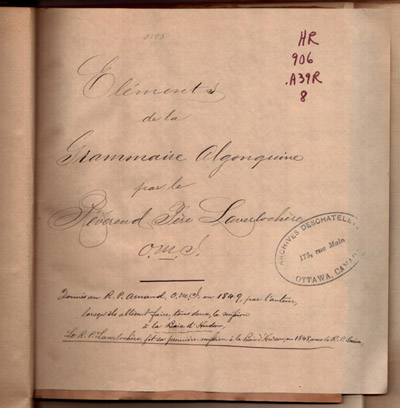 HR
906
.A39R
8
Eléments
de la
Grammaire Algonquine
par le
Révérend Père Laverlochère
O.M.I.
ARCHIVES DESCHATELETS
175, rue Main
OTTAWA, CANADA
Donnés au R. P. Arnaud, O.M.I. en 1849, par l'auteur,
lorsqu'ils allaient faire, tous deux, la mission
à la Baie d'Hudson,
Le R. P. Laverlochère fit sa première mission à la Baie d'Hudson, en 1848 avec le R. P.